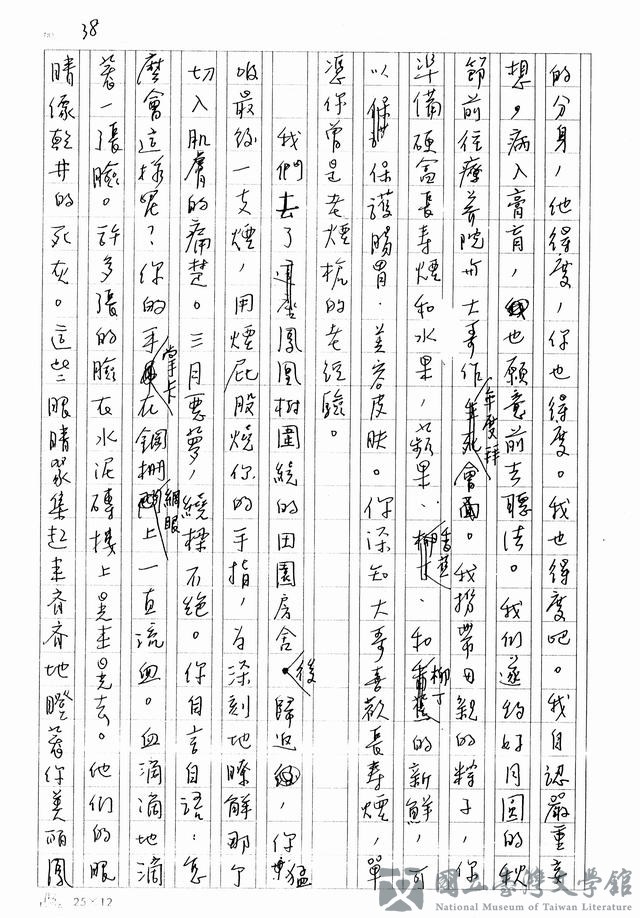 38
的分身，他得度，你也得度。我也得度吧。我自認嚴重妄
想，病入膏肓，也願意前去聽法。我們遂約好月圓的秋
節前往療養院與大哥作年度拜會。我攜帶母親的粽子，你
準備硬盒長壽煙和水果，蘋果、香蕉、和柳丁的新鮮，可
以保護腸胃、美容皮膚。你深知大哥喜歡長壽煙，單
憑你曾是老煙槍的老經驗。
我們去了這座鳳凰樹圍繞的田園房舍後。歸返，你猛
吸最後一支煙，用煙屁股燒你的手指，為深刻地瞭解那了
切入肌膚的痛楚。三月惡夢，繞樑不絕。你自言自語：怎
麼會這樣呢？你的手掌卡在鋼柵網眼上一直流血。血滴滴地滴
著一張臉。許多張的臉在水泥磚牆上晃來晃去。他們的眼
睛像乾井的死灰。這些眼睛聚集起來齊齊地瞪著你美麗鳳
25×12
國立臺灣文學館
National Museum of Taiwan Literature